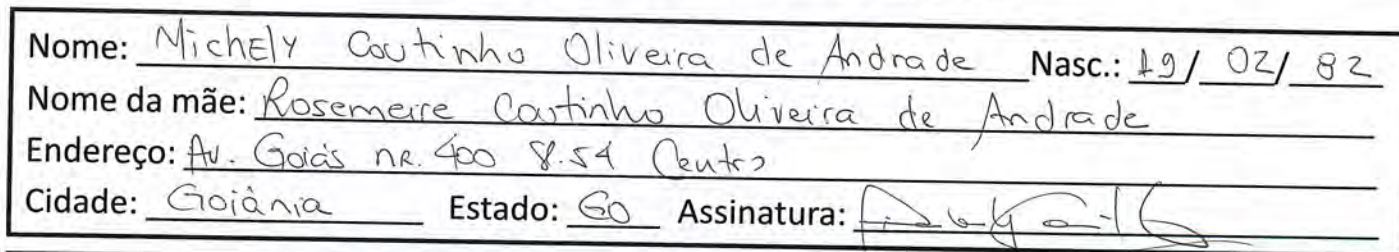 Nome: Michely Coutinho Oliveira de Andrade Nasc.: 19/02/82
Nome da mãe: Rosemeire Coutinho Oliveira de Andrade
Endereço: Av. Goiás nr. 400 Centro
Cidade: Goiânia Estado: GO Assinatura: